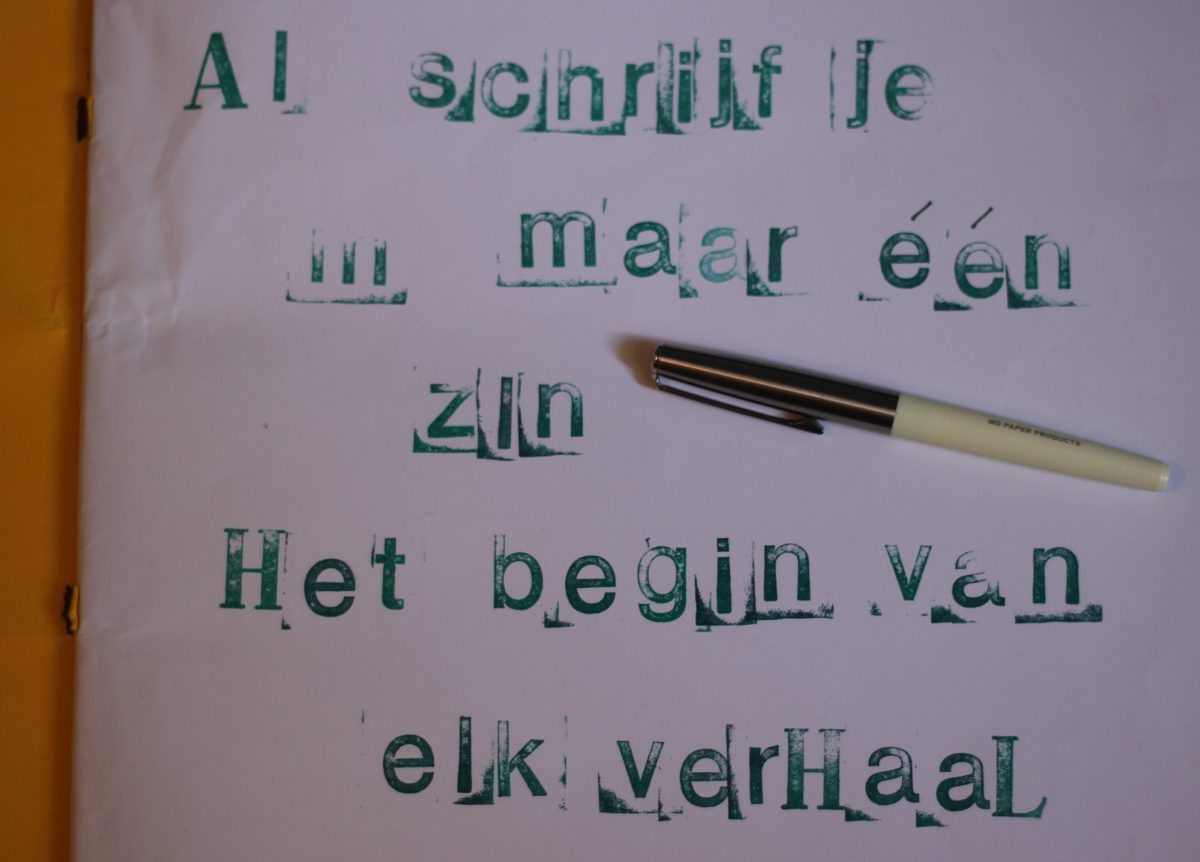 Al schrijf je
m maar één
zin
MD PAPER PRODUCTS
Het begin van
elk verHaaL